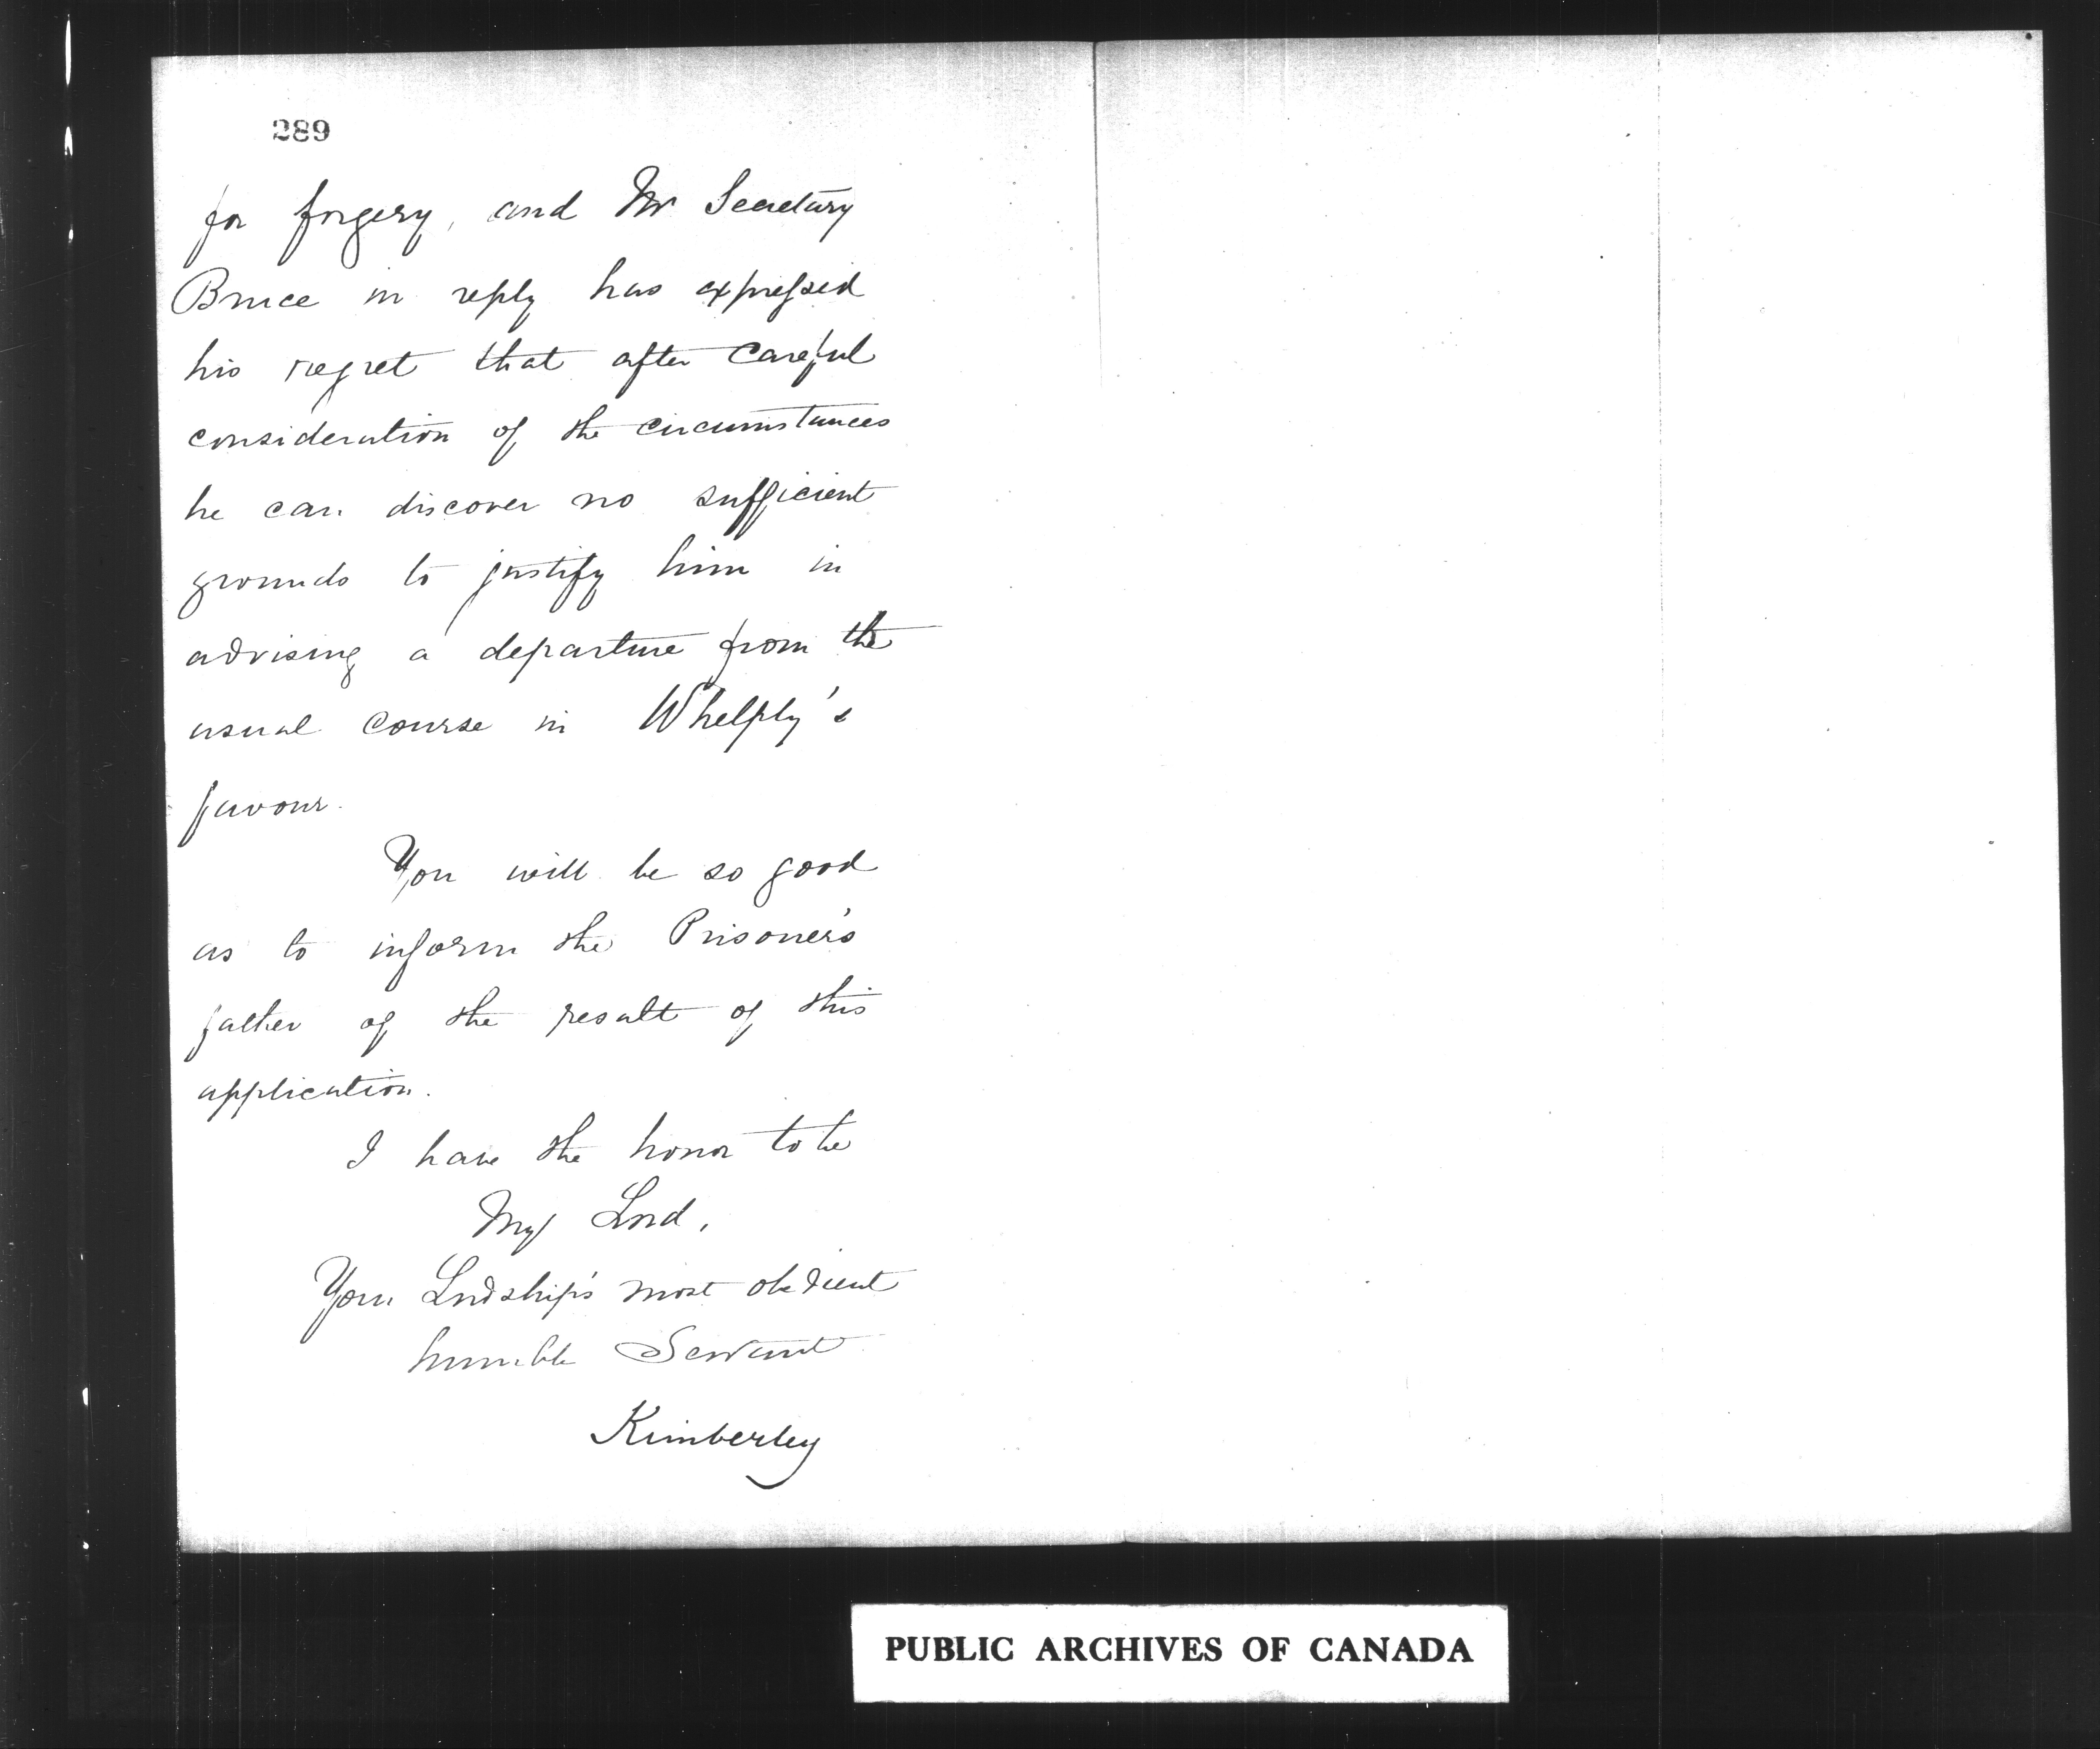 289
for forgery, and Mr Secretary
Bruce in reply has expressed
his regret that after careful
consideration of the circumstances
he can discover no sufficient
grounds to justify him in
advising a departure from the
usual course in Whelply's
favour.
You will be so good
as to inform the Prisoner's
father of the result of this
application.
I have the honor to be
My Lord,
Your Lordship's most obedient
humble Servant
Kimberley
PUBLIC ARCHIVES OF CANADA